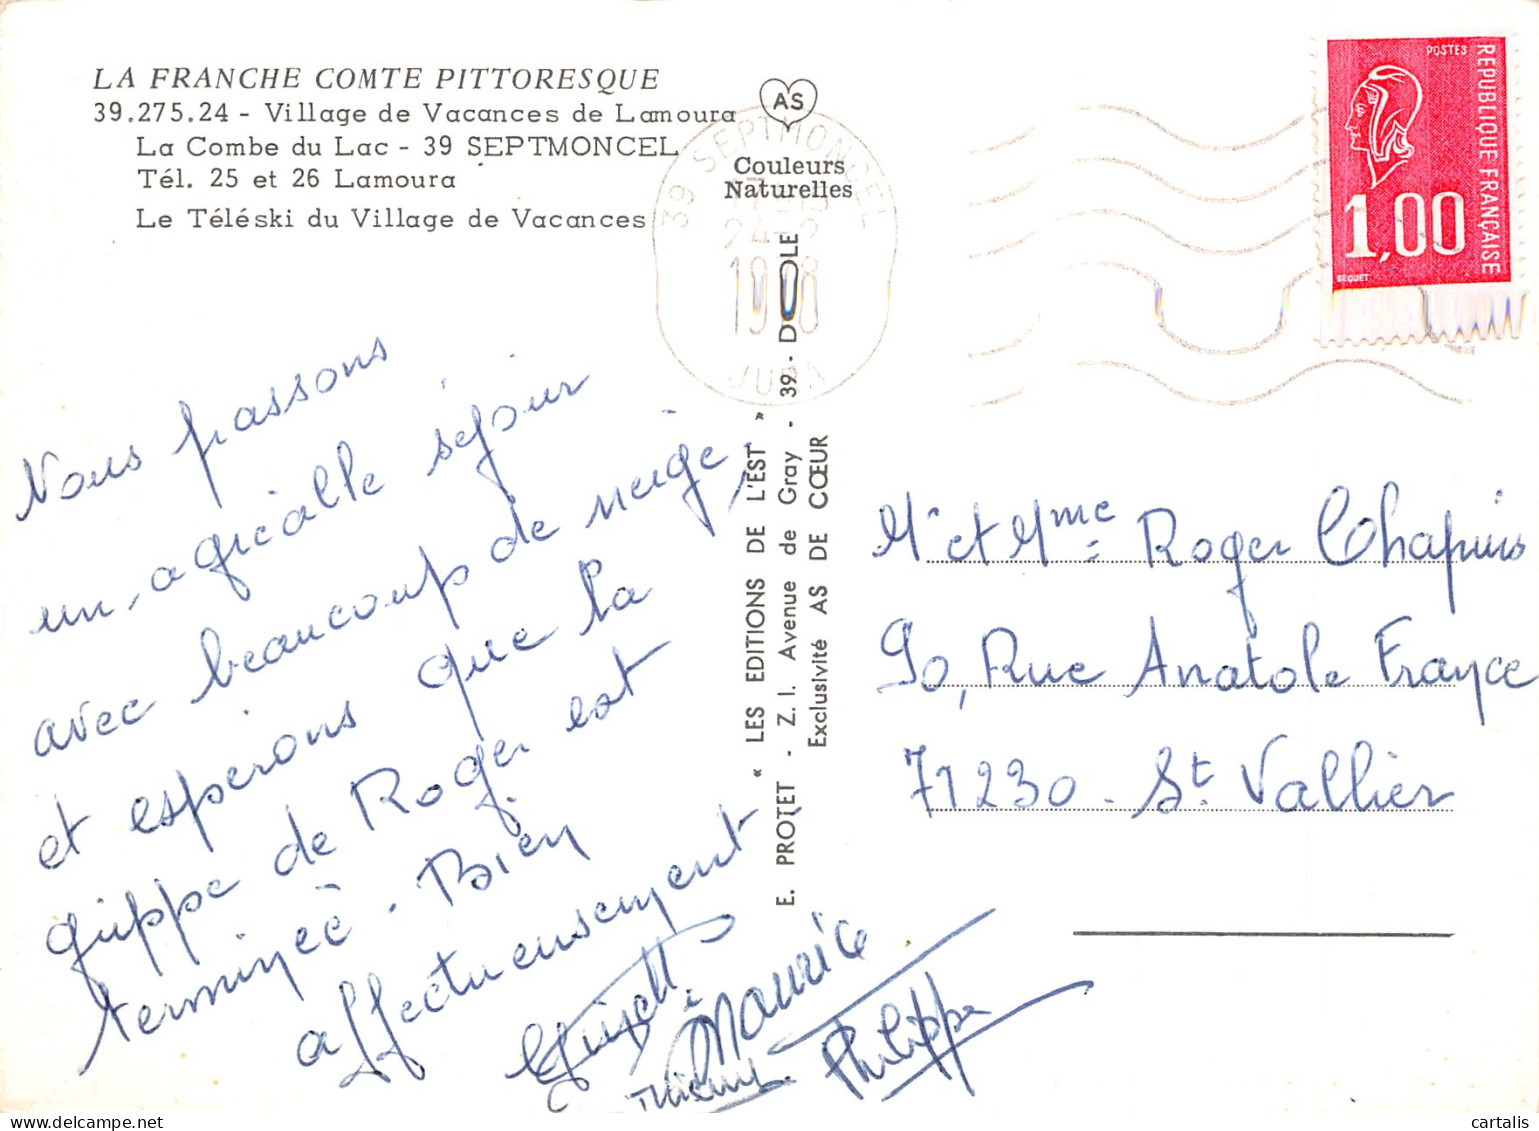 LA FRANCHE COMTE PITTORESQUE
39.275.24 - Village de Vacances de Lamoura
La Combe du Lac - 39 SEPTMONCEL
Tél. 25 et 26 Lamoura
Le Téléski du Village de Vacances
AS
Couleurs
Naturelles
39 SEPTMONCEL
24-2
1978
JURA
POSTES
REPUBLIQUE FRANÇAISE
1,00
BEQUET
Nous passons
un agréable séjour
avec beaucoup de neige,
et esperons que la
grippe de Roger est
terminée. Bien
affectueusement
Maurice
Philippe
E. PROTET « LES EDITIONS DE L'EST »
- Z. I. Avenue de Gray - 39 - DOLE
Exclusivité AS DE CŒUR
Mr et Mme Roger Chapuis
90, Rue Anatole France
71230 - St. Vallier
cartalis